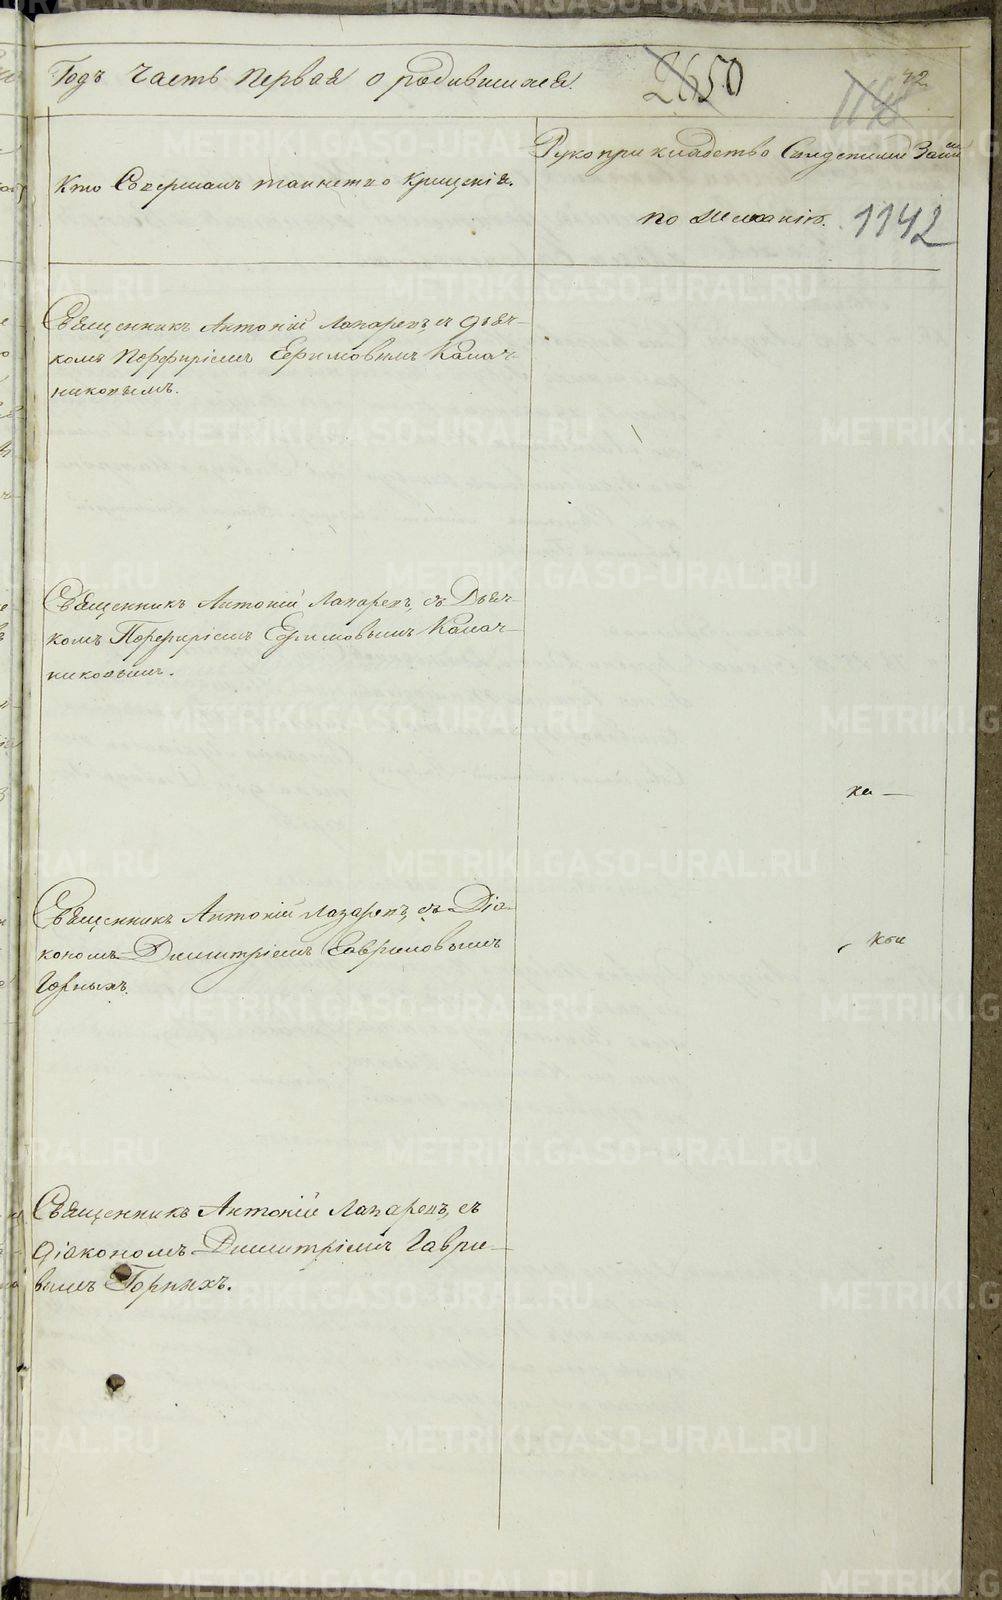 Годъ часть первая о родившихся.
2650
42
1148
Кто совершалъ таинство крещенія.
Рукоприкладство свидетелей записи
по желанію.
1142
Священникъ Антоній Лапаревъ, съ дьяч-
комъ Порфиріемъ Ефимовымъ Калач-
никовымъ.
Священникъ Антоній Лапаревъ, съ Дьяч-
комъ Порфиріемъ Ефимовымъ Калач-
никовымъ.
Священникъ Антоній Лазаревъ, съ Діа-
кономъ Димитріемъ Гавриловымъ
Горныхъ.
Священникъ Антоній Лапаревъ, съ
діакономъ Димитріемъ Гаври-
вымъ Горныхъ.
METRIKI.GASO-URAL.RU